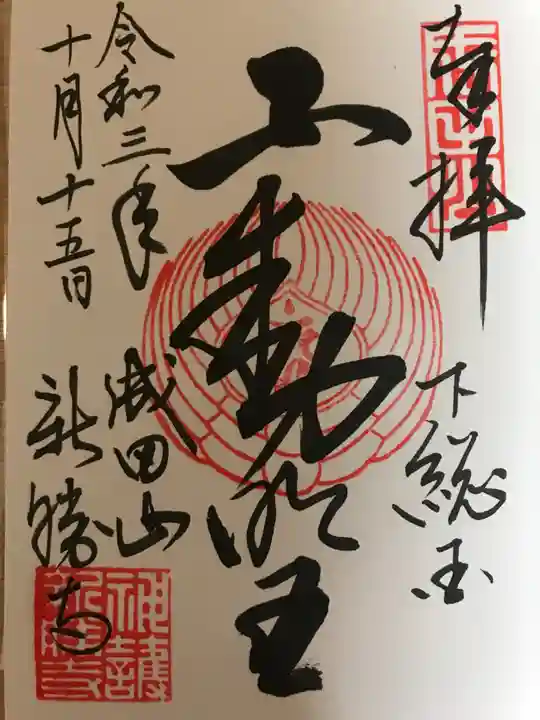 奉拝
下総国
不動明王
令和三年
十月十五日
成田山
新勝寺